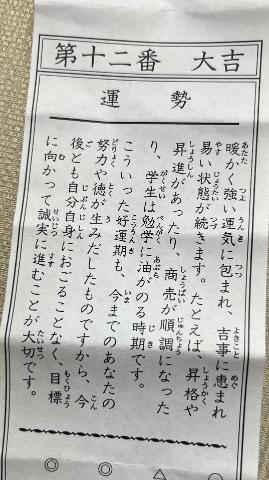 第十二番 大吉
運勢
暖かく強い運気に包まれ、吉事に恵まれ
易い状態が続きます。たとえば、昇格や
昇進があったり、商売が順調になった
り、学生は勉学に油がのる時期です。
こういった好運期も、今までのあなたの
努力や徳が生みだしたものですから、今
後とも自分自身におごることなく、目標
に向かって誠実に進むことが大切です。
◎ ○ △ ◎